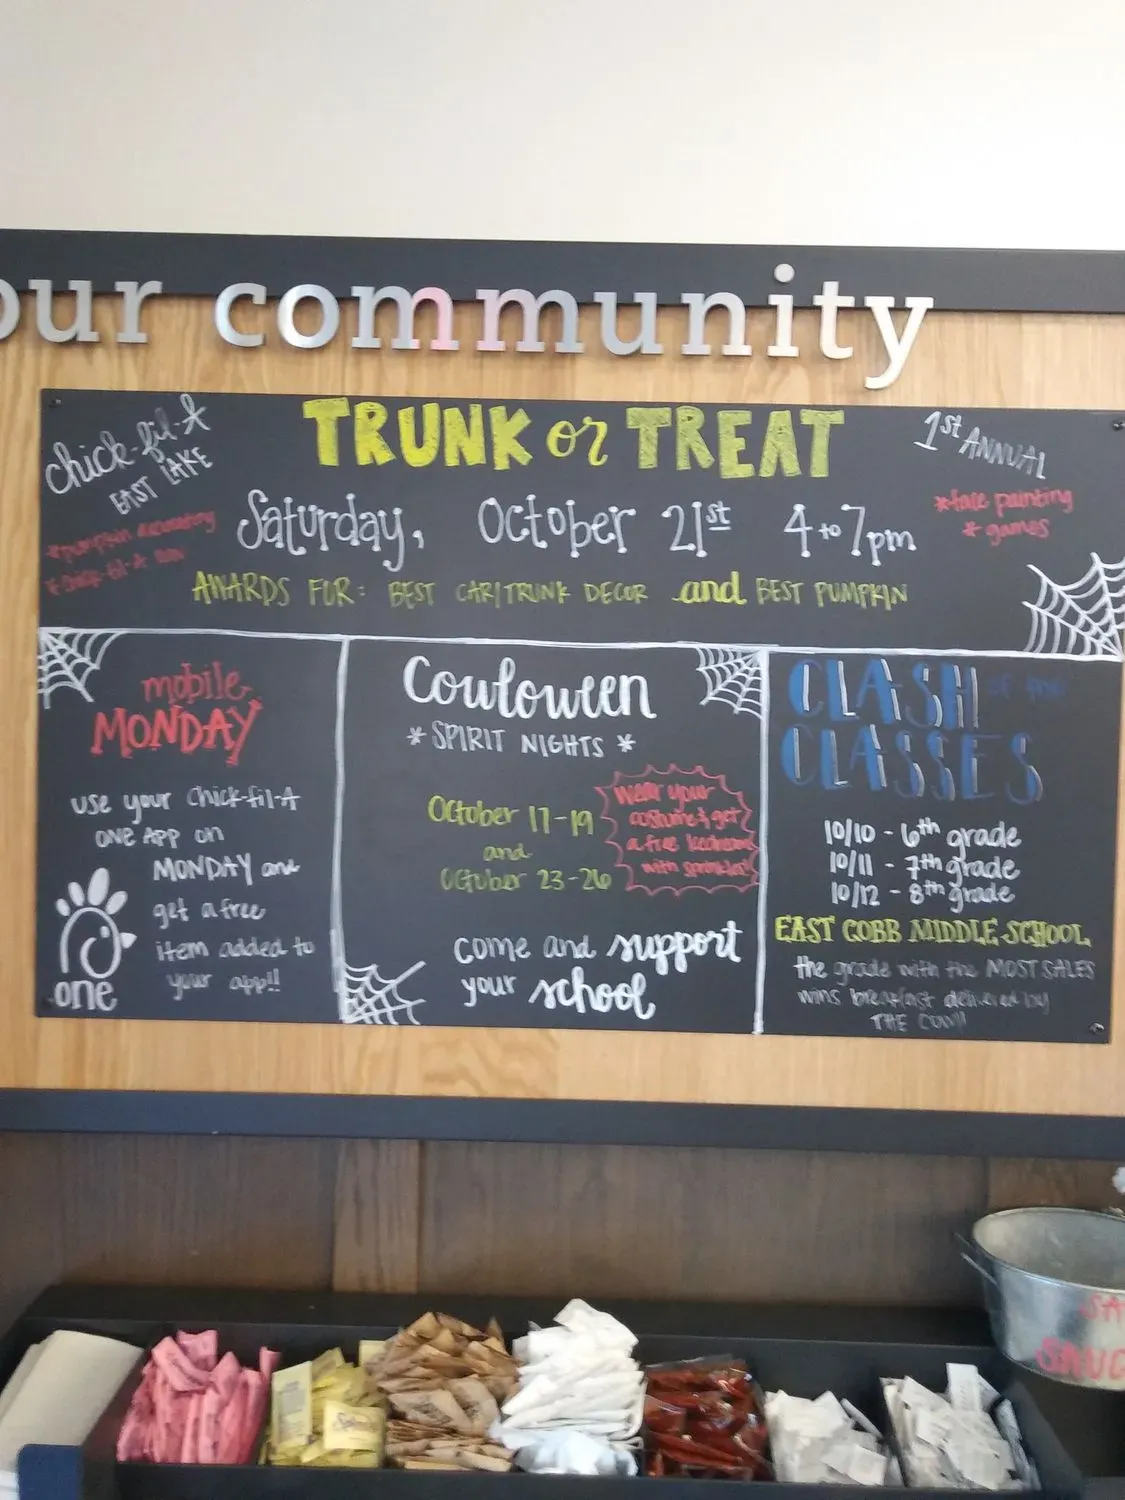 our community
chick-fil-A
EAST LAKE
TRUNK or TREAT
1st ANNUAL
Saturday, October 21st 4 to 7pm
*pumpkin decorating
*face painting
* games
AWARDS FOR: BEST CAR/TRUNK DECOR and BEST PUMPKIN
mobile
MONDAY
use your Chick-fil-A
ONE APP on
MONDAY and
get a free
item added to
your app!!
one
Cowloween
* SPIRIT NIGHTS *
October 17-19
and
October 23-26
Wear your
costume & get
a free Icedream
with sprinkles!
come and support
your school
CLASH of the
CLASSES
10/10 - 6th grade
10/11 - 7th grade
10/12 - 8th grade
EAST COBB MIDDLE SCHOOL
the grade with the MOST SALES
wins breakfast delivered by
THE COW!!